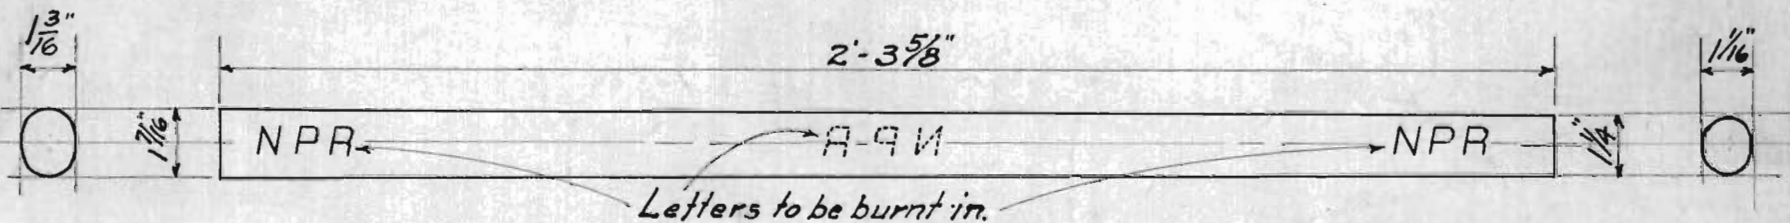 1 3/16"
2'-3 5/8"
1 1/16"
1 7/16"
NPR
NPR
NPR
1 1/4"
Letters to be burnt in.